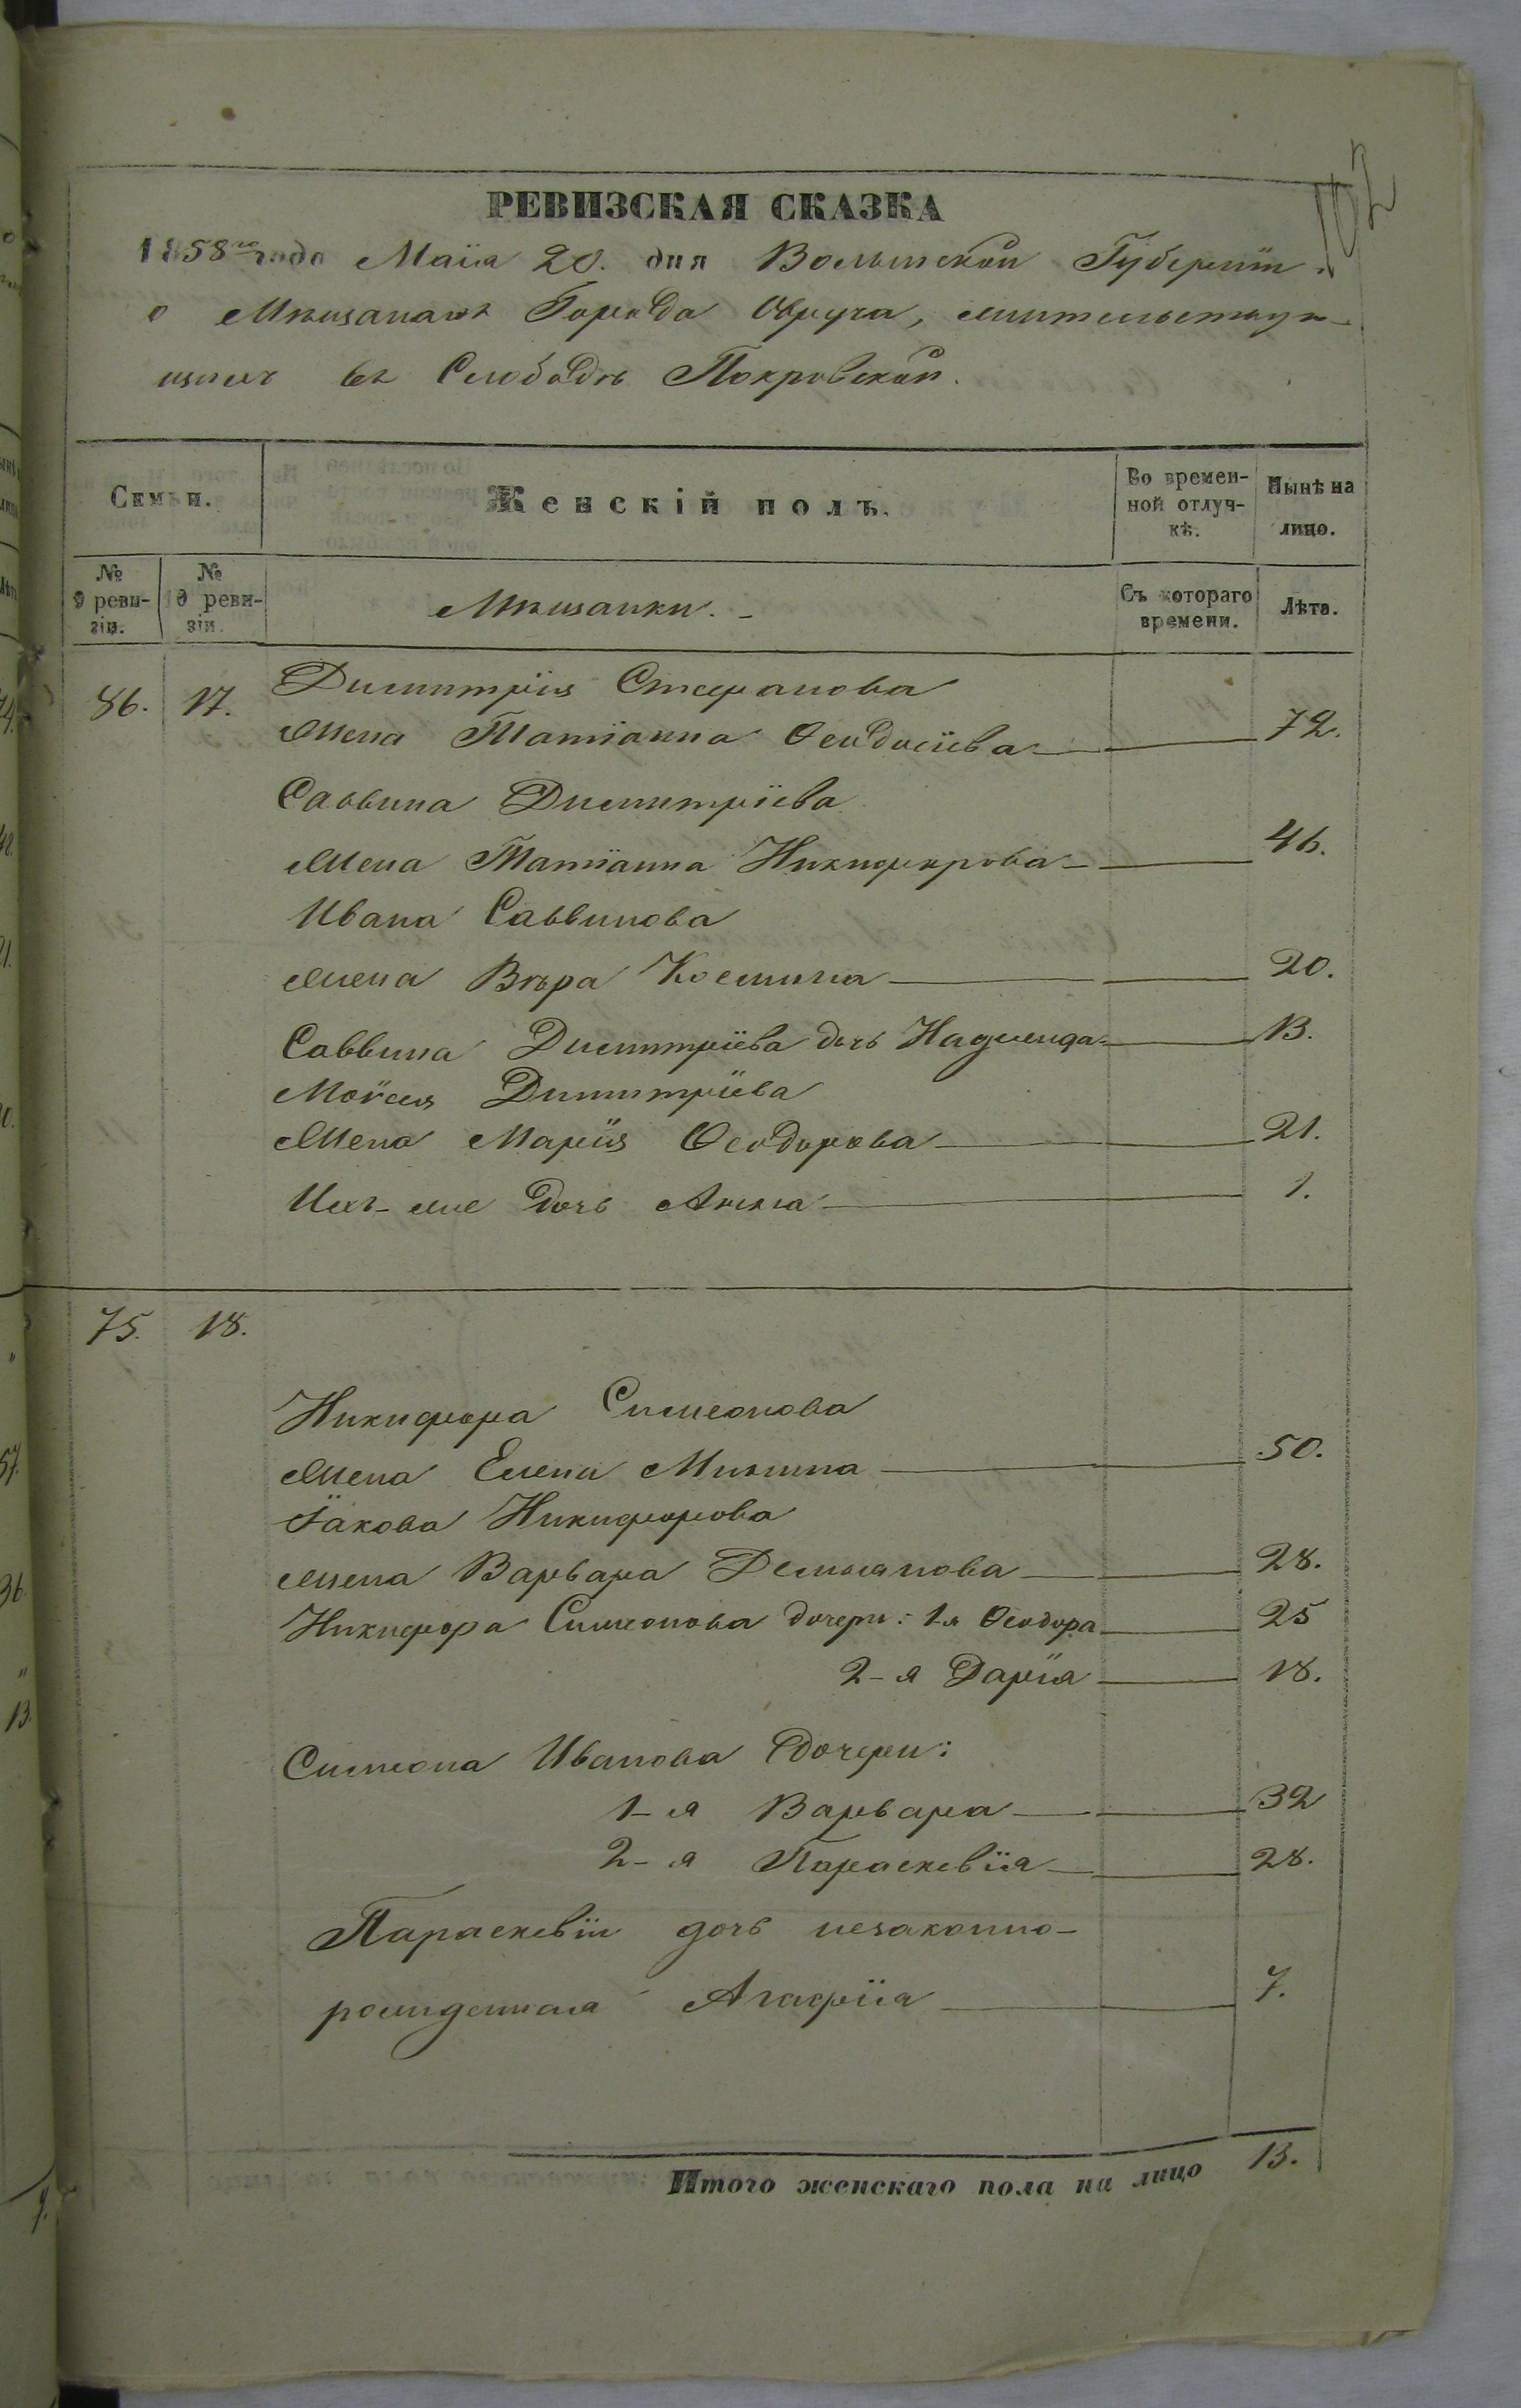 102
РЕВИЗСКАЯ СКАЗКА
1858го года Маiя 20. дня Волынской Губернiи
о Мѣщанахъ Города Овруча, жительствую-
щихъ въ Слободѣ Покровской.
Семьи. Женскiй полъ. Во времен-ной отлуч-кѣ. Нынѣ на лицо.
№ 9 реви-зiи. № 10 реви-зiи. Мѣщанки. Съ котораго времени. Лѣта.
86. 17. Димитрiя Стефанова
Жена Татiанна Ѳеодосiева 72.
Саввина Димитрiева
Жена Татiанна Никифорова 46.
Ивана Саввинова
Жена Вѣра Космина 20.
Саввина Димитрiева дочь Надежда 13.
Моѵсея Димитрiева
Жена Марiя Ѳеодорова 21.
Ихъ-же дочь Анна 1.
75. 18.
Никифора Симеонова
Жена Елена Минина 50.
Iакова Никифорова
Жена Варвара Демьянова 28.
Никифора Симеонова дочери: 1-я Ѳеодора 25
2-я Дарiя 18.
Симеона Иванова дочери:
1-я Варвара 32
2-я Параскевiя 28.
Параскевiи дочь незаконно-
рожденная Агафiя 7.
Итого женскаго пола на лицо 13.